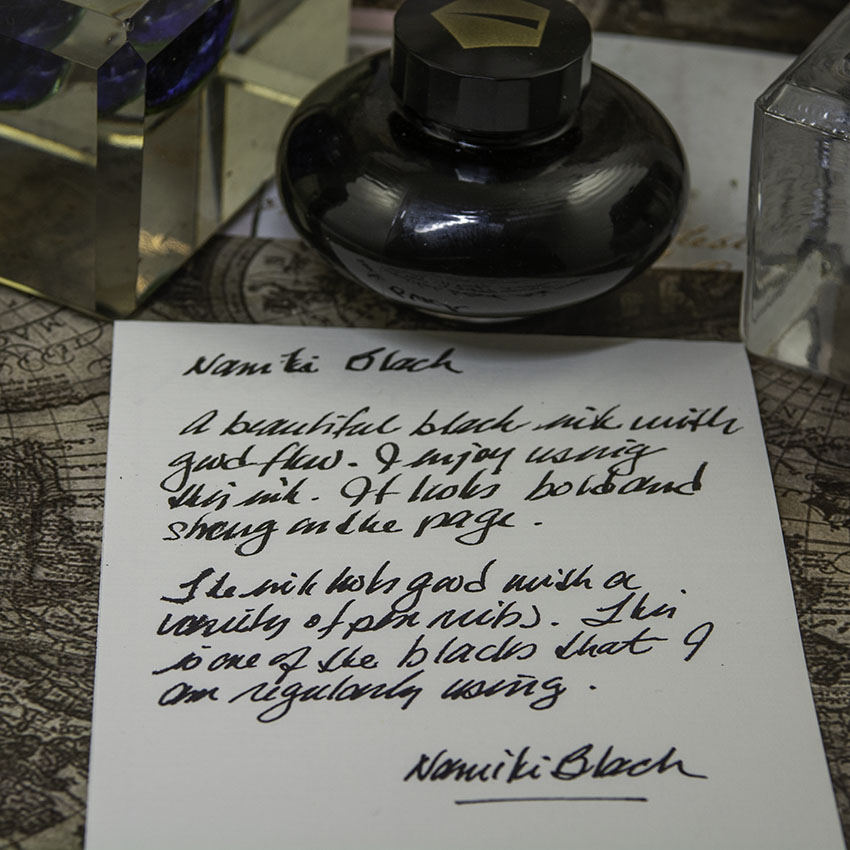 Namiki Black
A beautiful black ink with
good flow. I enjoy using
this ink. It looks bold and
strong on the page.
The ink looks good with a
variety of pen nibs. This
is one of the blacks that I
am regularly using.
Namiki Black